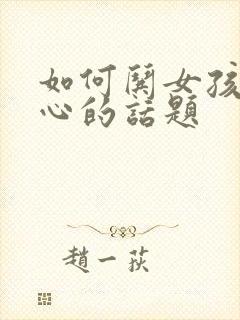 如何鬨女孩
心的話題
趙一荻